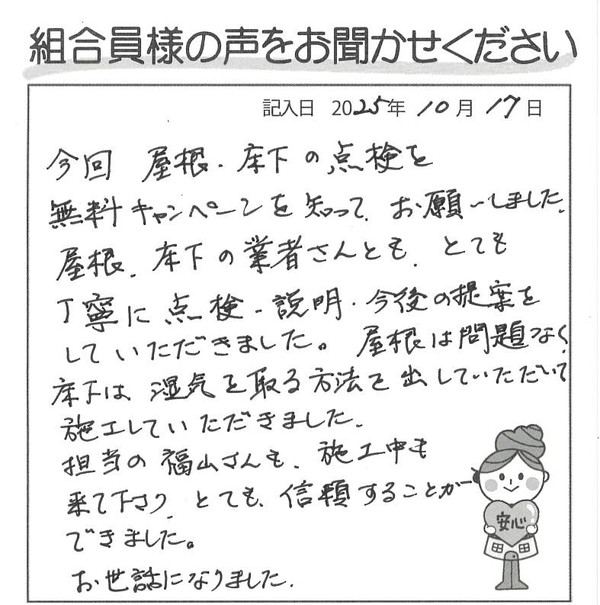 組合員様の声をお聞かせください
記入日 2025年 10月 17日
今回 屋根・床下の点検を
無料キャンペーンを知って、お願いしました。
屋根、床下の業者さんとも、とても
丁寧に点検・説明・今後の提案を
していただきました。屋根は問題なく、
床下は湿気を取る方法を出していただいて
施工していただきました。
担当の福山さんも、施工中も
来て下さり、とても、信頼することが
できました。
お世話になりました。
安心